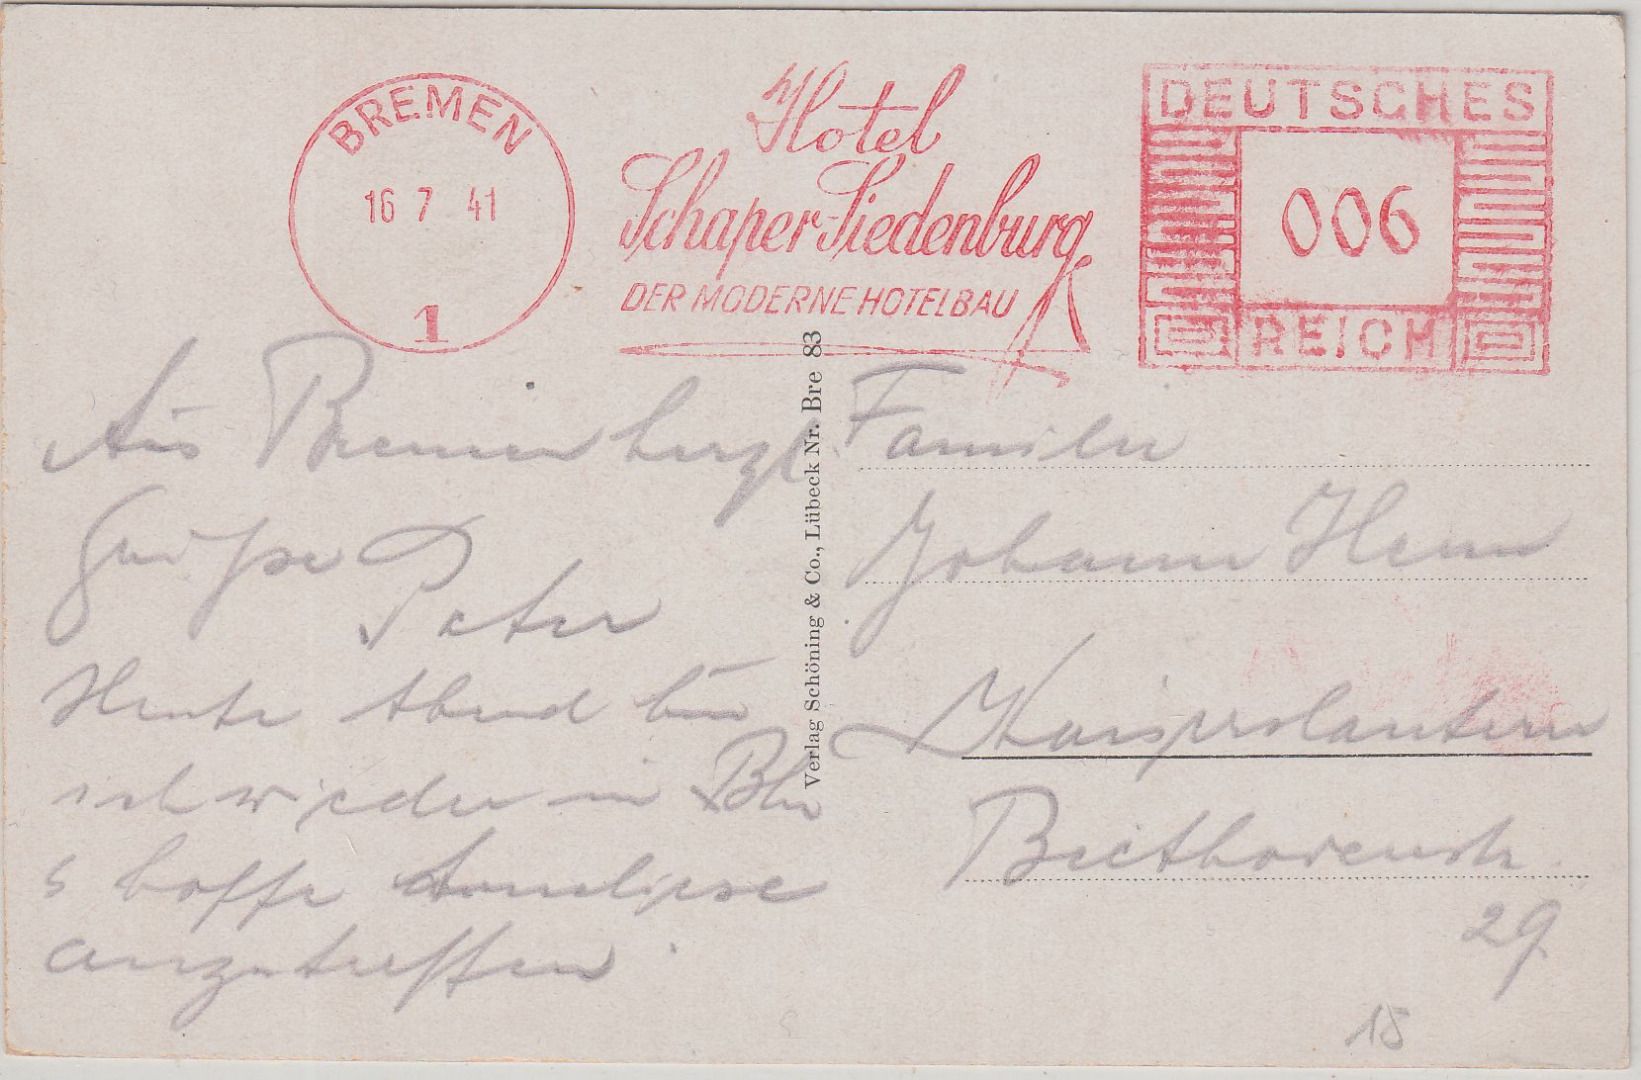 BREMEN
16 7 41
1
Hotel
Schaper-Siedenburg
DER MODERNE HOTELBAU
DEUTSCHES
006
REICH
Verlag Schöning & Co., Lübeck Nr. Bre 83
Aus Bremen herzl.
Grüsse
Peter
Heute Abend bin
ich wieder in Bln
& hoffe Anneliese
anzutreffen.
Familie
Johann
Kaiserslautern
Beethovenstr.
29
15